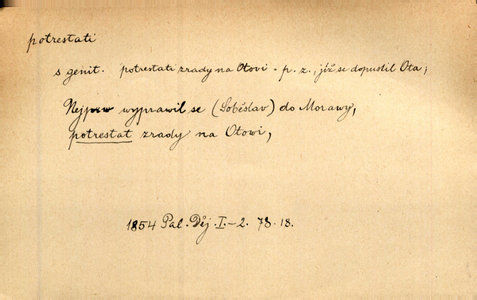 potrestati
s genit. potrestati zrady na Otovi - p. z., jíž se dopustil Ota;
Nejprw wyprawil se (Soběslav) do Morawy,
potrestat zrady na Otowi,
1854 Pal. Děj. I.-2. 78. 18.